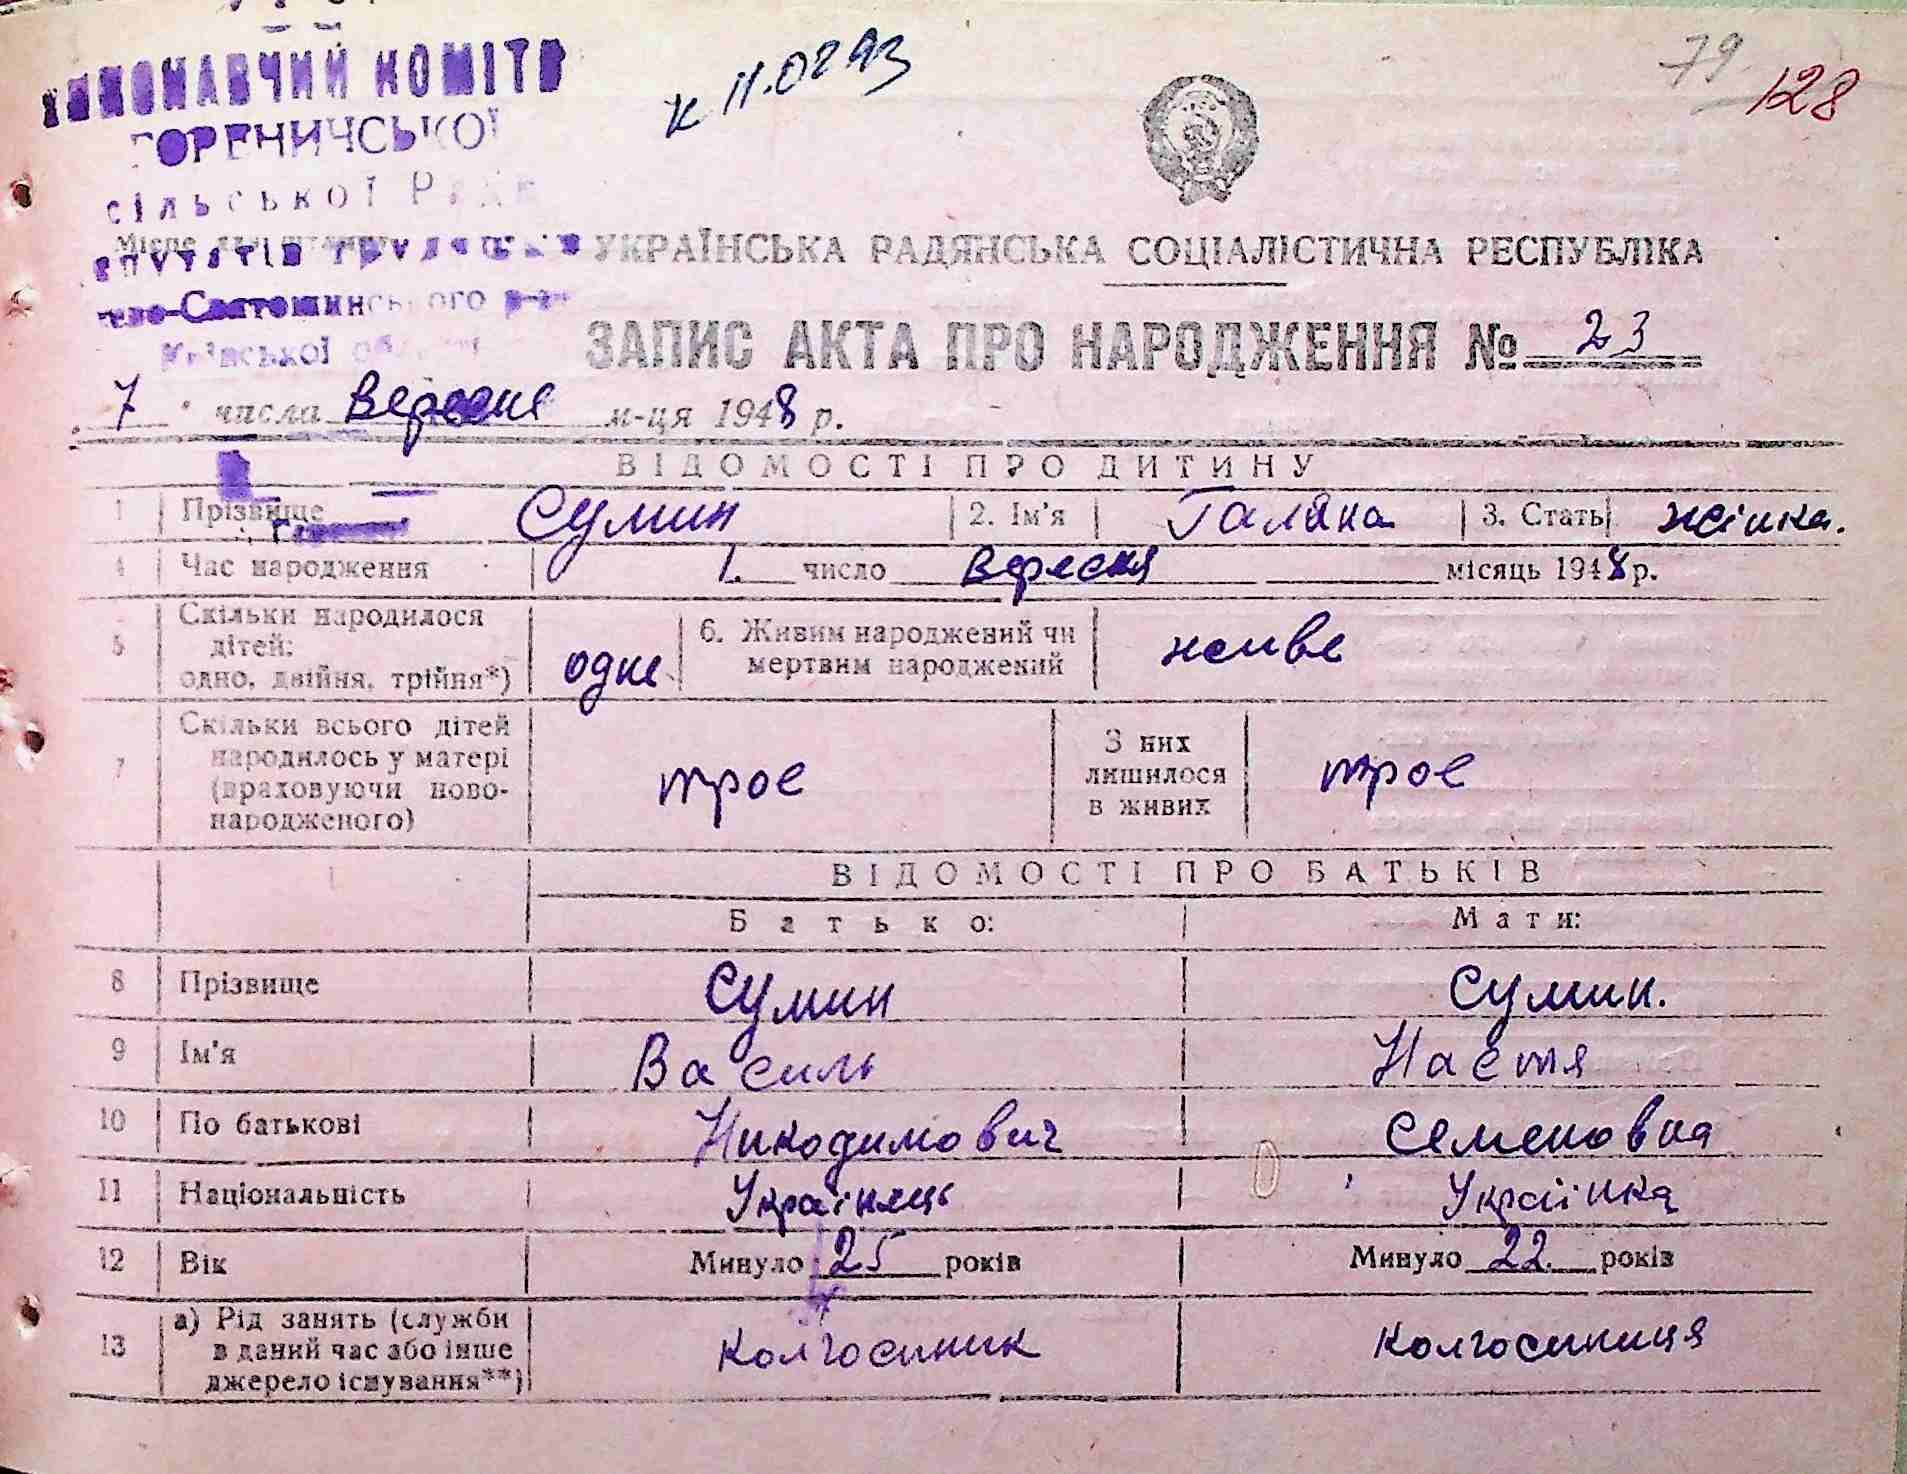 к 11.0293
79
128
ВИКОНАВЧИЙ КОМІТЕ
ГОРЕНИЧСЬКОЇ
сільської Ради
Місце для штампу
депутатів трудящих
Києво-Святошинського р-ну
Київської області
УКРАЇНСЬКА РАДЯНСЬКА СОЦІАЛІСТИЧНА РЕСПУБЛІКА
ЗАПИС АКТА ПРО НАРОДЖЕННЯ № 23
7 числа Вересня м-ця 1948 р.
ВІДОМОСТІ ПРО ДИТИНУ
1 Прізвище Сумин 2. Ім'я Галина 3. Стать жінка.
4 Час народження 1. число Вересня місяць 1948 р.
5 Скільки народилося дітей: одно, двійня, трійня*) одне 6. Живим народжений чи мертвим народжений живе
7 Скільки всього дітей народилось у матері (враховуючи новонародженого) троє З них лишилося в живих троє
ВІДОМОСТІ ПРО БАТЬКІВ
Батько: Мати:
8 Прізвище Сумин Сумин.
9 Ім'я Василь Настя
10 По батькові Никодимович Семеновна
11 Національність Українець Українка
12 Вік Минуло 25 років Минуло 22. років
13 а) Рід занять (служби в даний час або інше джерело існування**) Колгоспник Колгоспниця